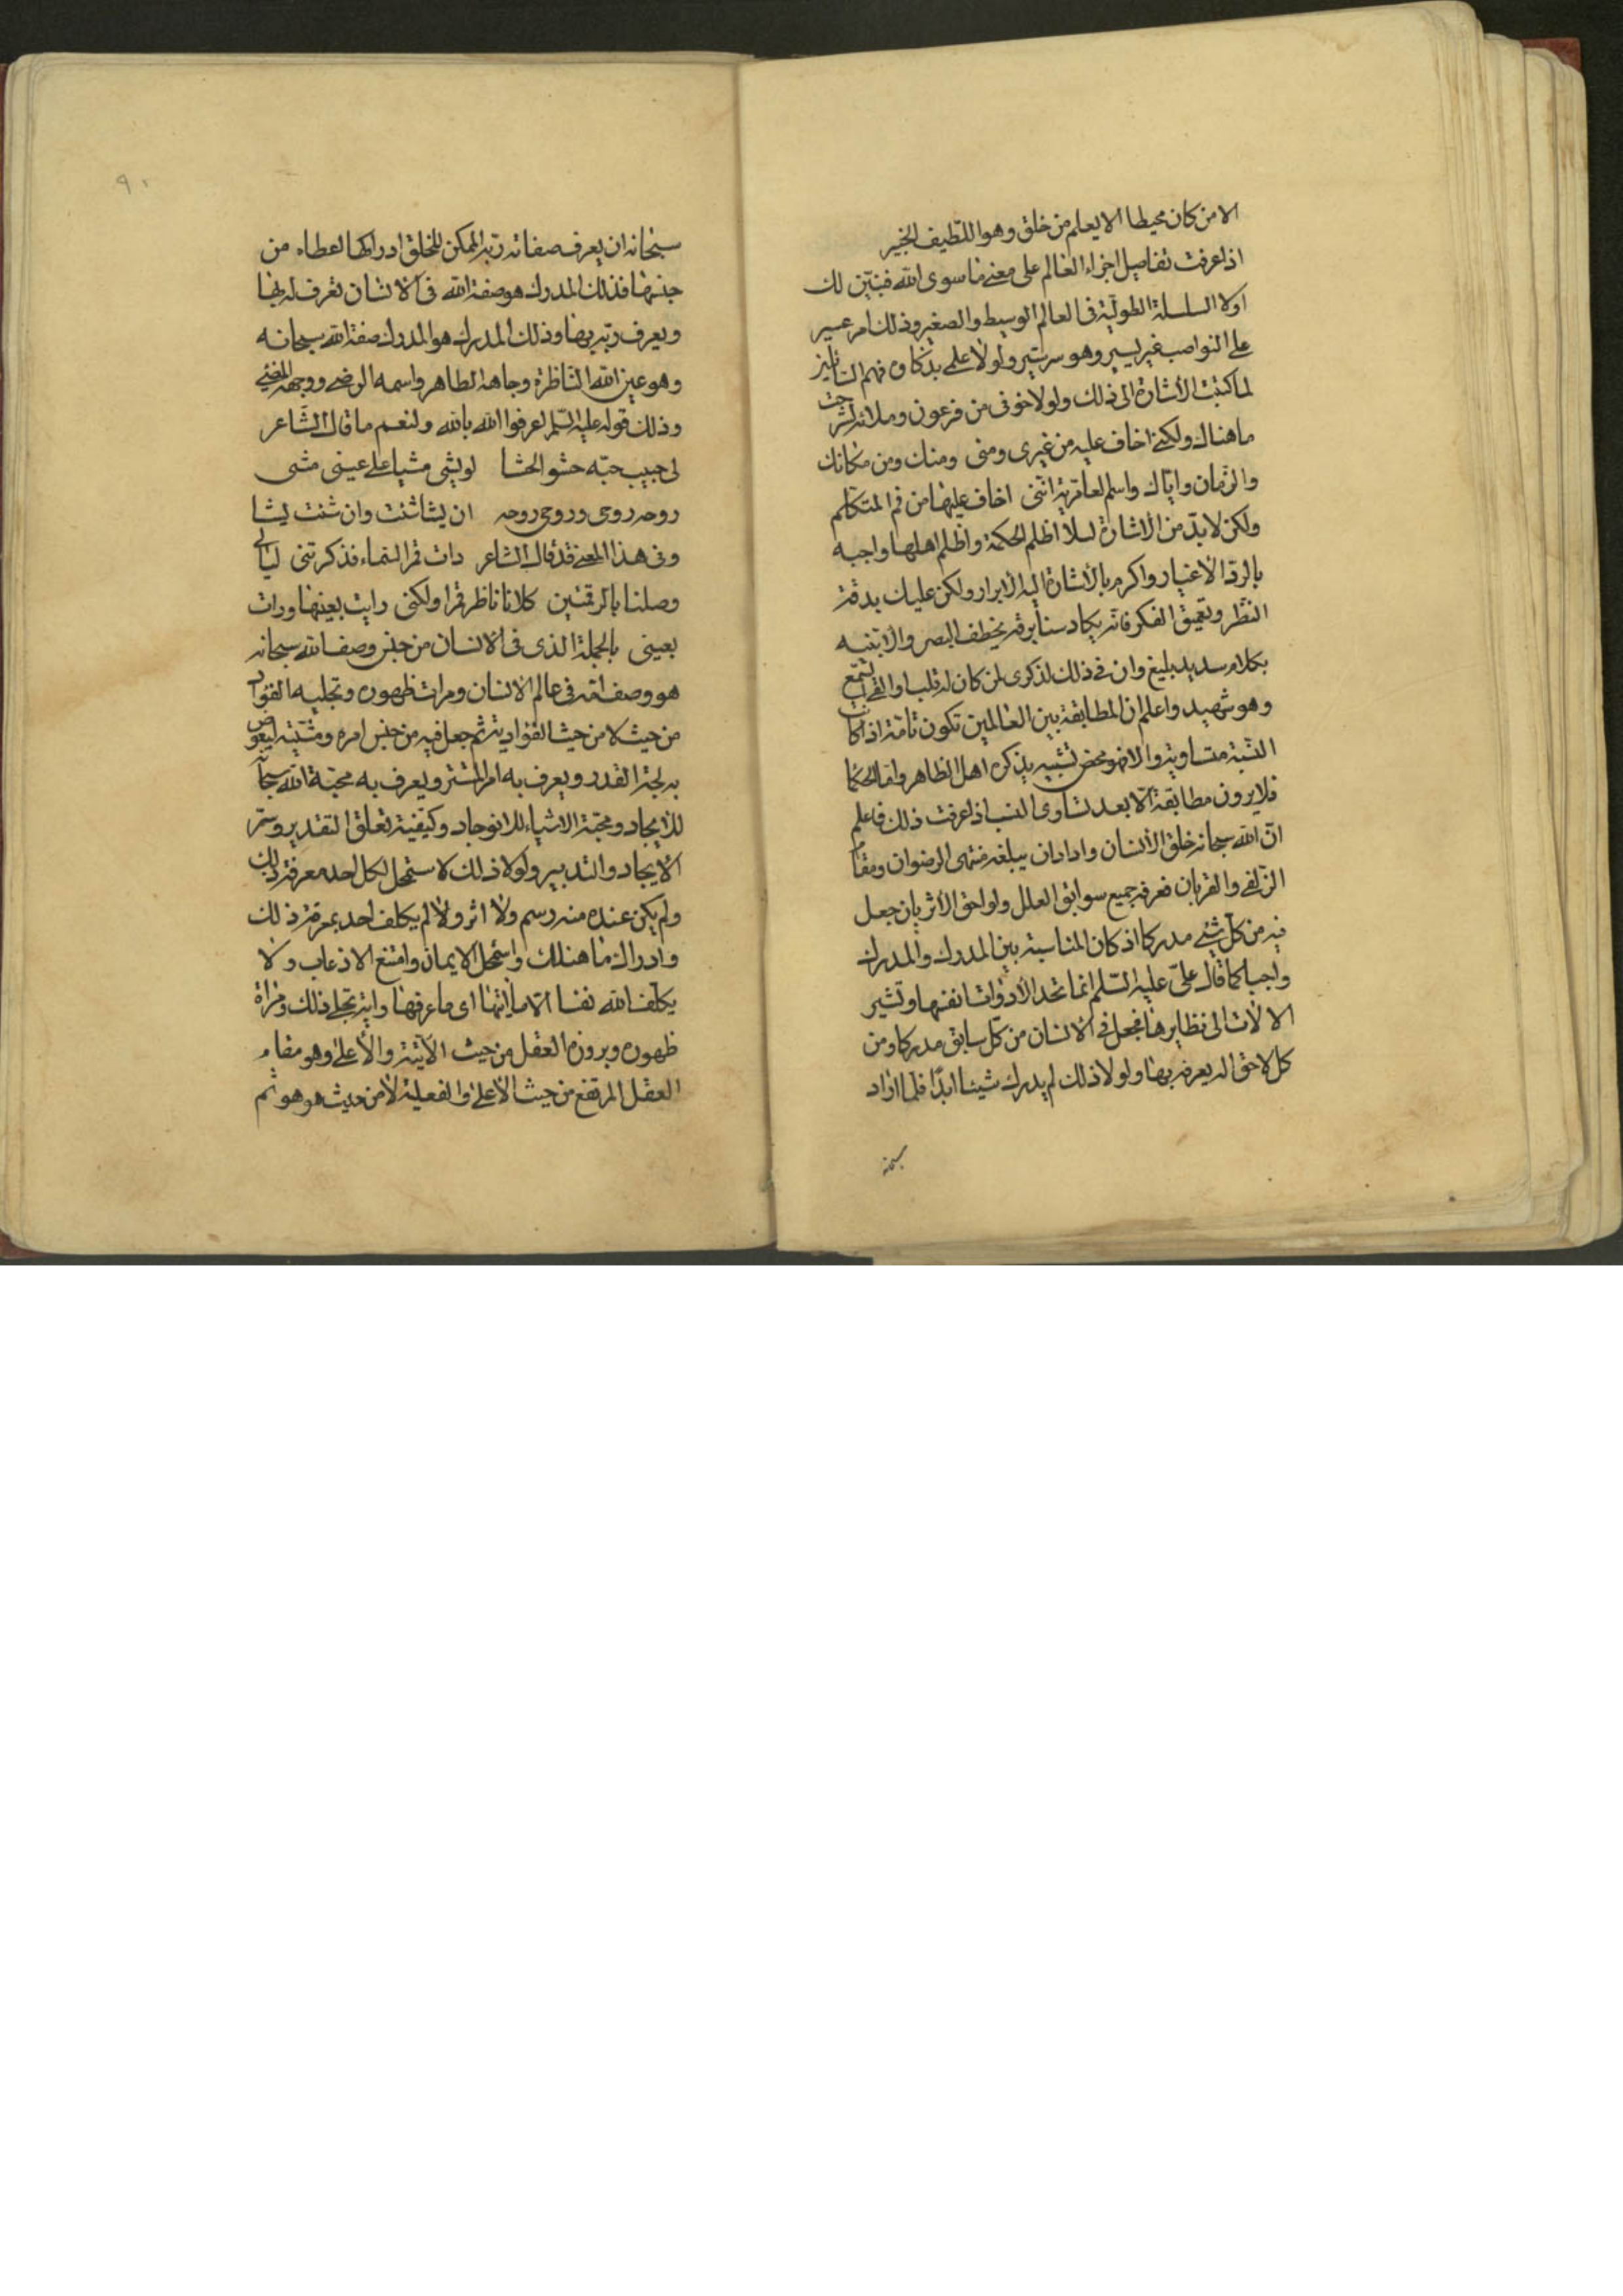 الا من كان محيطا الا يعلم من خلق وهو اللّطيف الخبير
اذا عرفت تفاصيل اجزاء العالم على معنى ما سوى الله فنبيّن لك
اولا السلسلة الطوليّة فى العالم الوسيط والصغير وذلك امر عسير
على النواصب غير يسير وهو سر ستير ولولا علمى بذكاوة فهم الناظرين
لما كتبت الأشارة الى ذلك ولولا خوفى من فرعون وملائه لشرحت
ما هناك ولكنى اخاف عليه من غيرى ومنى ومنك ومن مكانك
والزمان واياك واسم العامرية اننى اخاف عليها من فم المتكلم
ولكن لا بدّ من الاشارة لسلا اظلم الحكمة واظلم اهلها واجبه
بالردّ الأغيار واكرم بالأشارة اليه الأبرار ولكن عليك بدقة
النّظر وتعميق الفكر فانه يكاد سنا برقه يخطف البصر والا تنبه
بكلام سديد بليغ وان فى ذلك لذكرى لمن كان له قلب او القى السّمع
وهو شهيد واعلم ان المطابقة بين العالمين تكون تامّة اذا كانت
النسبة متساوية والا فهو محض تشبيه يذكره اهل الظاهر واما الحكما
فلا يرون مطابقة الّا بعد تساوى النسب اذا عرفت ذلك فاعلم
انّ الله سبحانه خلق الأنسان واراد ان يبلغه منتهى الرضوان ومقام
الزلفى والقربان فعرفه جميع سوابق العلل ولواحق الأثر بان جعل
فيه من كلّ شىء مدركا اذ كان المناسبة بين المدرك والمدرك
واجبا كما قال علىّ عليه السّلم انما تحد الأدوات انفسها وتشير
الالات الى نظايرها فجعل فى الانسان من كلّ سابق مدركا ومن
كل لاحق اله يعرفه بها ولولا ذلك لم يدرك شيئا ابدًا فلما اراد
سبحانه
٩٠
سبحانه ان يعرفه صفاته ربه الممكن للخلق ادراكها اعطاه من
جنسها فذلك المدرك هو صفة الله فى الانسان تعرف له بها
ويعرف ربّه بها وذلك المدرك هو المدرك صفة الله سبحانه
وهو عين الله النّاظرة وجاهه الظاهر واسمه الرضى ووجهه المضىء
وذلك قوله عليه السّلم اعرفوا الله بالله ولنعم ما قال الشّاعر
لى حبيب حبّه حشو الحشا لو يشى مشيا على عينى مشى
روحه روحى وروحى روحه ان يشا شئت وان شئت يشا
وفى هذا المعنى قد قال الشاعر رات قمر السّماء فذكرتنى ليالى
وصلنا بالرقمتين كلانا ناظر قمرا ولكنى رايت بعينها ورات
بعينى بالجملة الذى فى الانسان من جنس وصف الله سبحانه
هو وصف الله فى عالم الانسان ومرات ظهوره وتجليه الفؤاد
من حيث لا من حيث الفؤادية ثم جعل فيه من جنس امره ومشيّته ليغوص
به لجة القدر ويعرف به امر المستتر ويعرف به محبّة الله سبحانه
للأيجاد ومحبّة الاشياء للانوجاد وكيفية تعلق التقدير وسرّ
الأيجاد والتدبير ولولا ذلك لاستحل لكل احد معرفة ذلك
ولم يكن عنده منه رسم ولا اثر ولا لم يكلف احد بمعرفة ذلك
وادراك ما هنالك واستحل الايمان وامتنع الاذعاب ولا
يكلف الله نفسا الا ما اتيها اى ما عرفها واية تجلى ذلك ومراة
ظهوره وبروزه العقل من حيث الآئية والأعلى وهو مقام
العقل المرتفع من حيث الأعلى والفعلية لا من حيث هو هو ثم